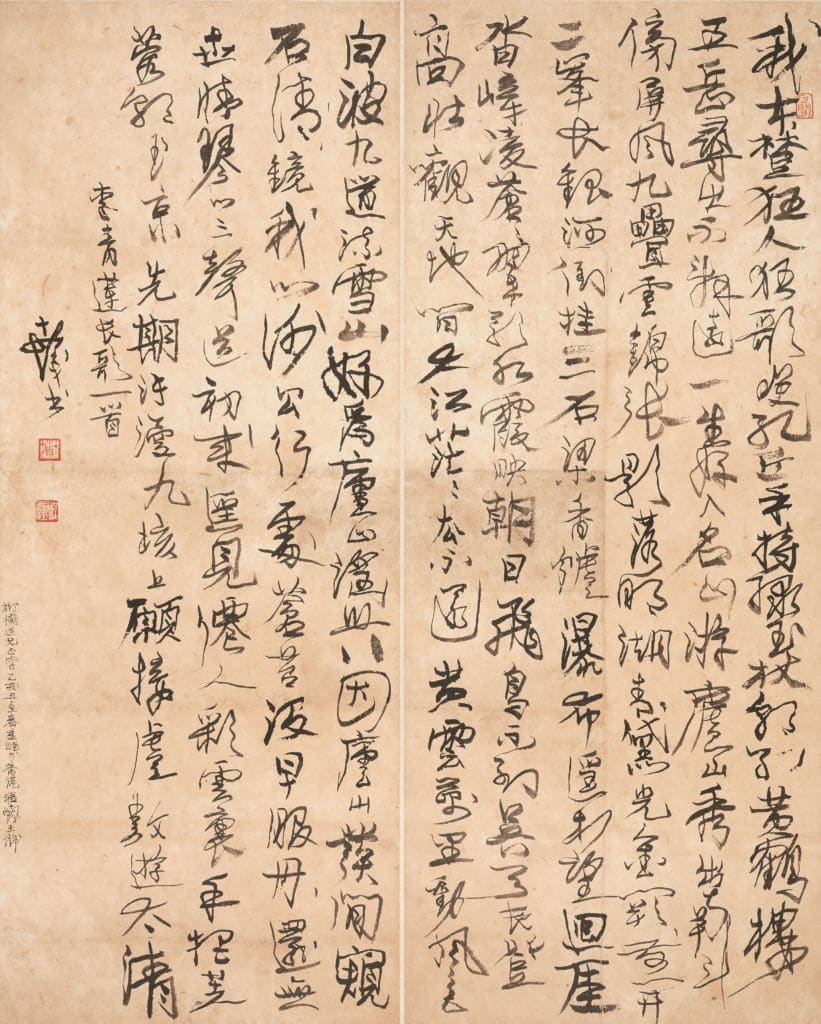 我本楚狂人狂歌笑孔丘手持綠玉杖朝別黃鶴樓
五岳尋仙不辭遠一生好入名山游廬山秀出南斗
傍屏風九疊雲錦張影落明湖青黛光金闕前開
二峯長銀河倒挂三石梁香爐瀑布遙相望迴崖
沓嶂凌蒼〻翠影紅霞映朝日飛鳥不到吳天長登
高壯觀天地間大江茫〻去不還黃雲萬里動風色
白波九道流雪山好為廬山謠興因廬山發閒窺
石清鏡我心謝公行處蒼苔沒早服丹還無
世情琴心三聲道初成遙見僊人彩雲裏手把芙
蓉朝玉京先期汗漫九垓上願接盧敖遊太清
書青蓮長歌一首
書